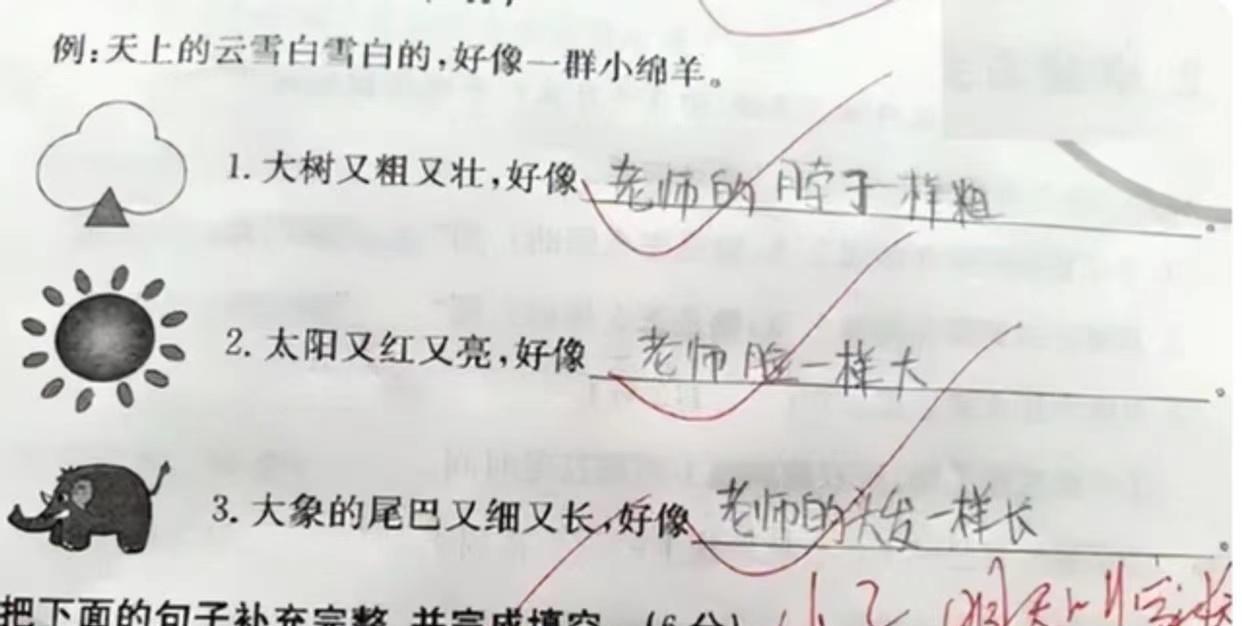 例:天上的云雪白雪白的,好像一群小绵羊。
1. 大树又粗又壮,好像老师的脖子一样粗。
2. 太阳又红又亮,好像老师脸一样大。
3. 大象的尾巴又细又长,好像老师的头发一样长。
把下面的句子补充完整,并完成填空。(6分)